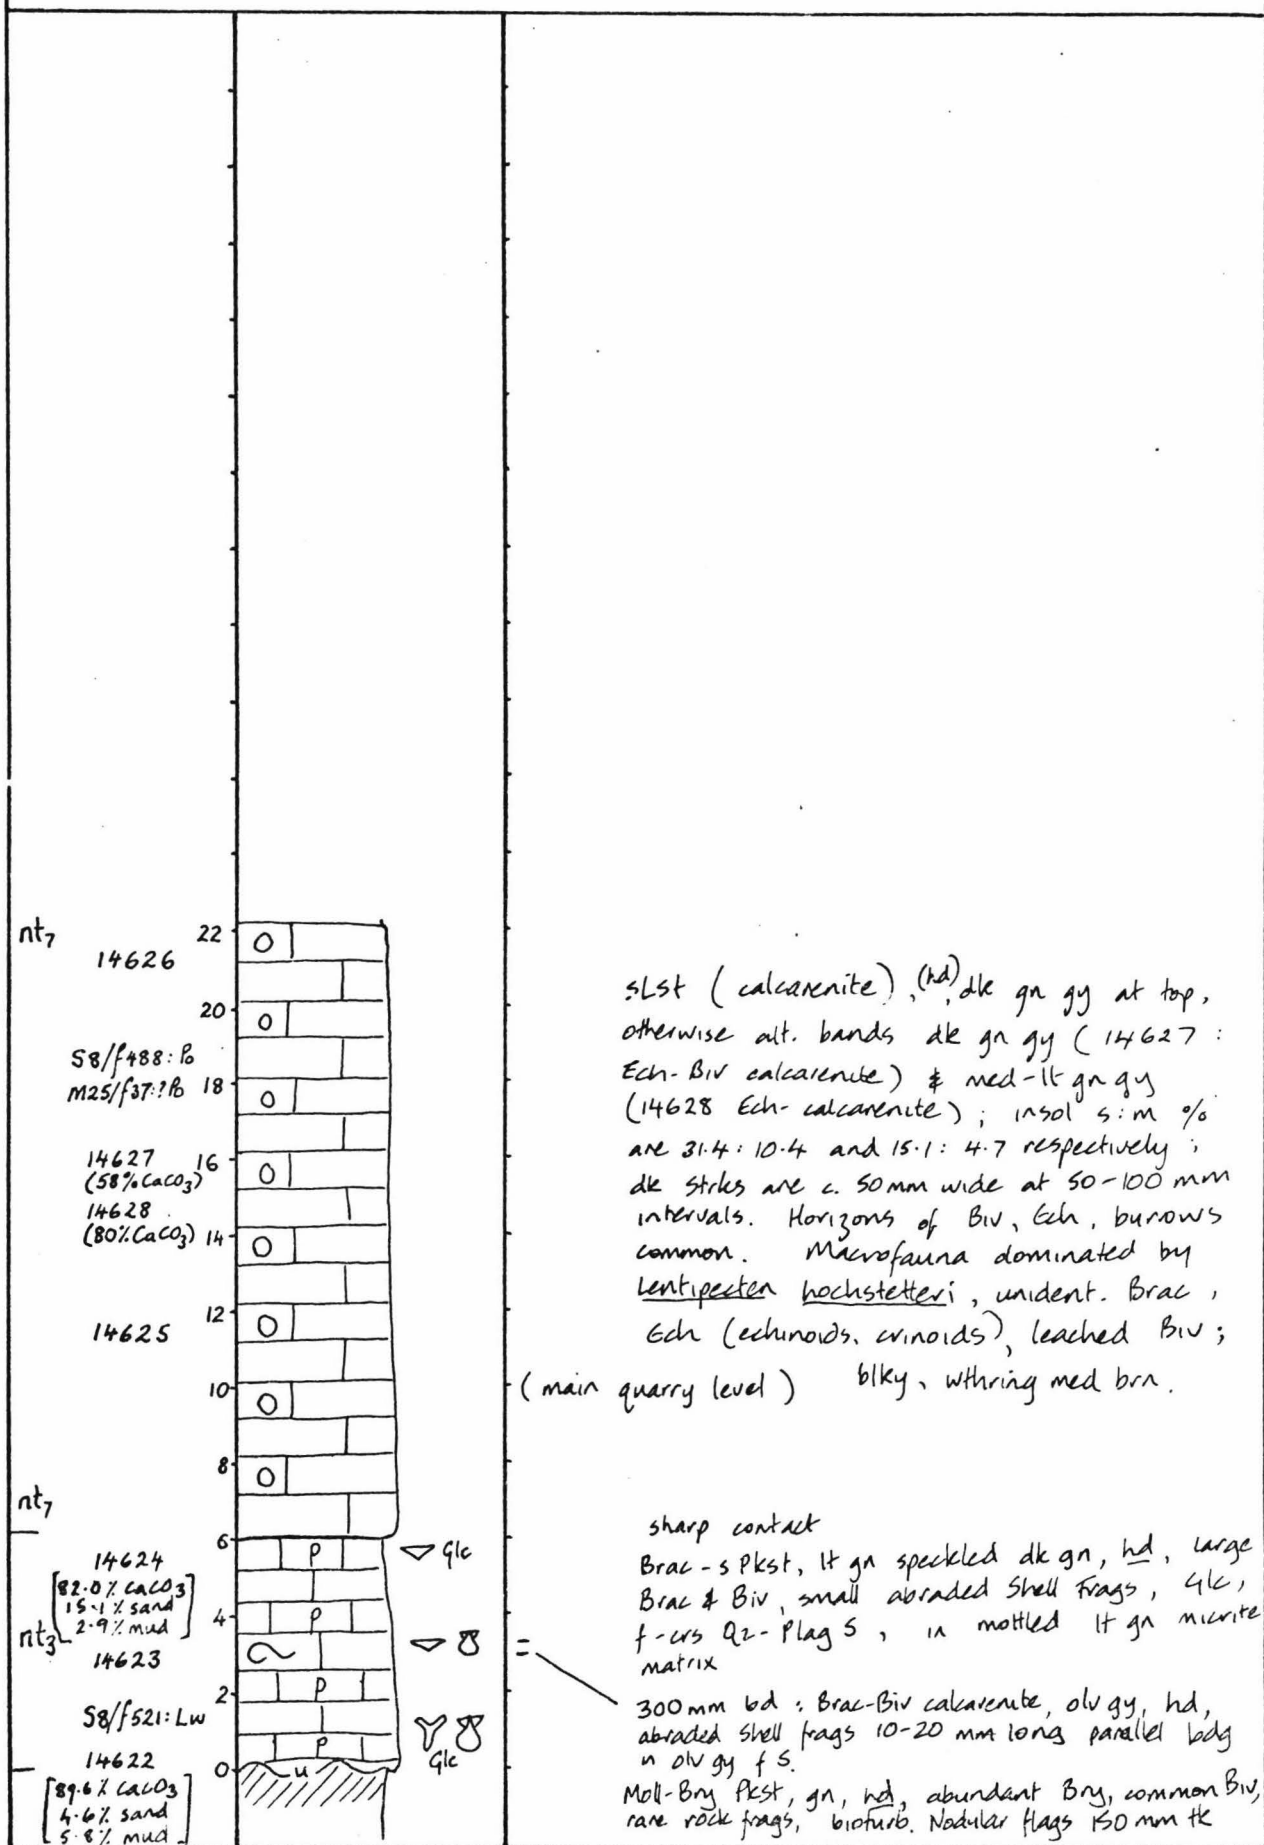 nt7
14626
22
20
S8/f488: Po
M25/f37: ?Po
18
14627
(58% CaCO3)
16
14628
(80% CaCO3)
14
14625
12
10
8
nt7
6
14624
[82.0% CaCO3
15.1% sand
2.9% mud]
4
nt3
14623
2
S8/f521: Lw
14622
0
[89.6% CaCO3
4.6% sand
5.8% mud]
O
O
O
O
O
O
O
O
P
P
P
P
u
Glc
Glc
sLst (calcarenite), (hd), dk gn gy at top,
otherwise alt. bands dk gn gy (14627 :
Ech-Biv calcarenite) & med-lt gn gy
(14628 Ech- calcarenite) ; insol s:m %
are 31.4 : 10.4 and 15.1 : 4.7 respectively ;
dk strks are c. 50mm wide at 50-100 mm
intervals. Horizons of Biv, Ech, burrows
common. Macrofauna dominated by
Lentipecten hochstetteri, unident. Brac,
Ech (echinoids, crinoids), leached Biv ;
(main quarry level) blky, wthring med brn.
sharp contact
Brac-s Pkst, lt gn speckled dk gn, hd, large
Brac & Biv, small abraded Shell Frags, Glc,
f-crs Qz-Plag S, in mottled lt gn micrite
matrix
300mm bd : Brac-Biv calcarenite, olv gy, hd,
abraded shell frags 10-20 mm long parallel bdg
n olv gy f S.
Moll-Bry Pkst, gn, hd, abundant Bry, common Biv,
rare rock frags, bioturb. Nodular flags 150 mm tk